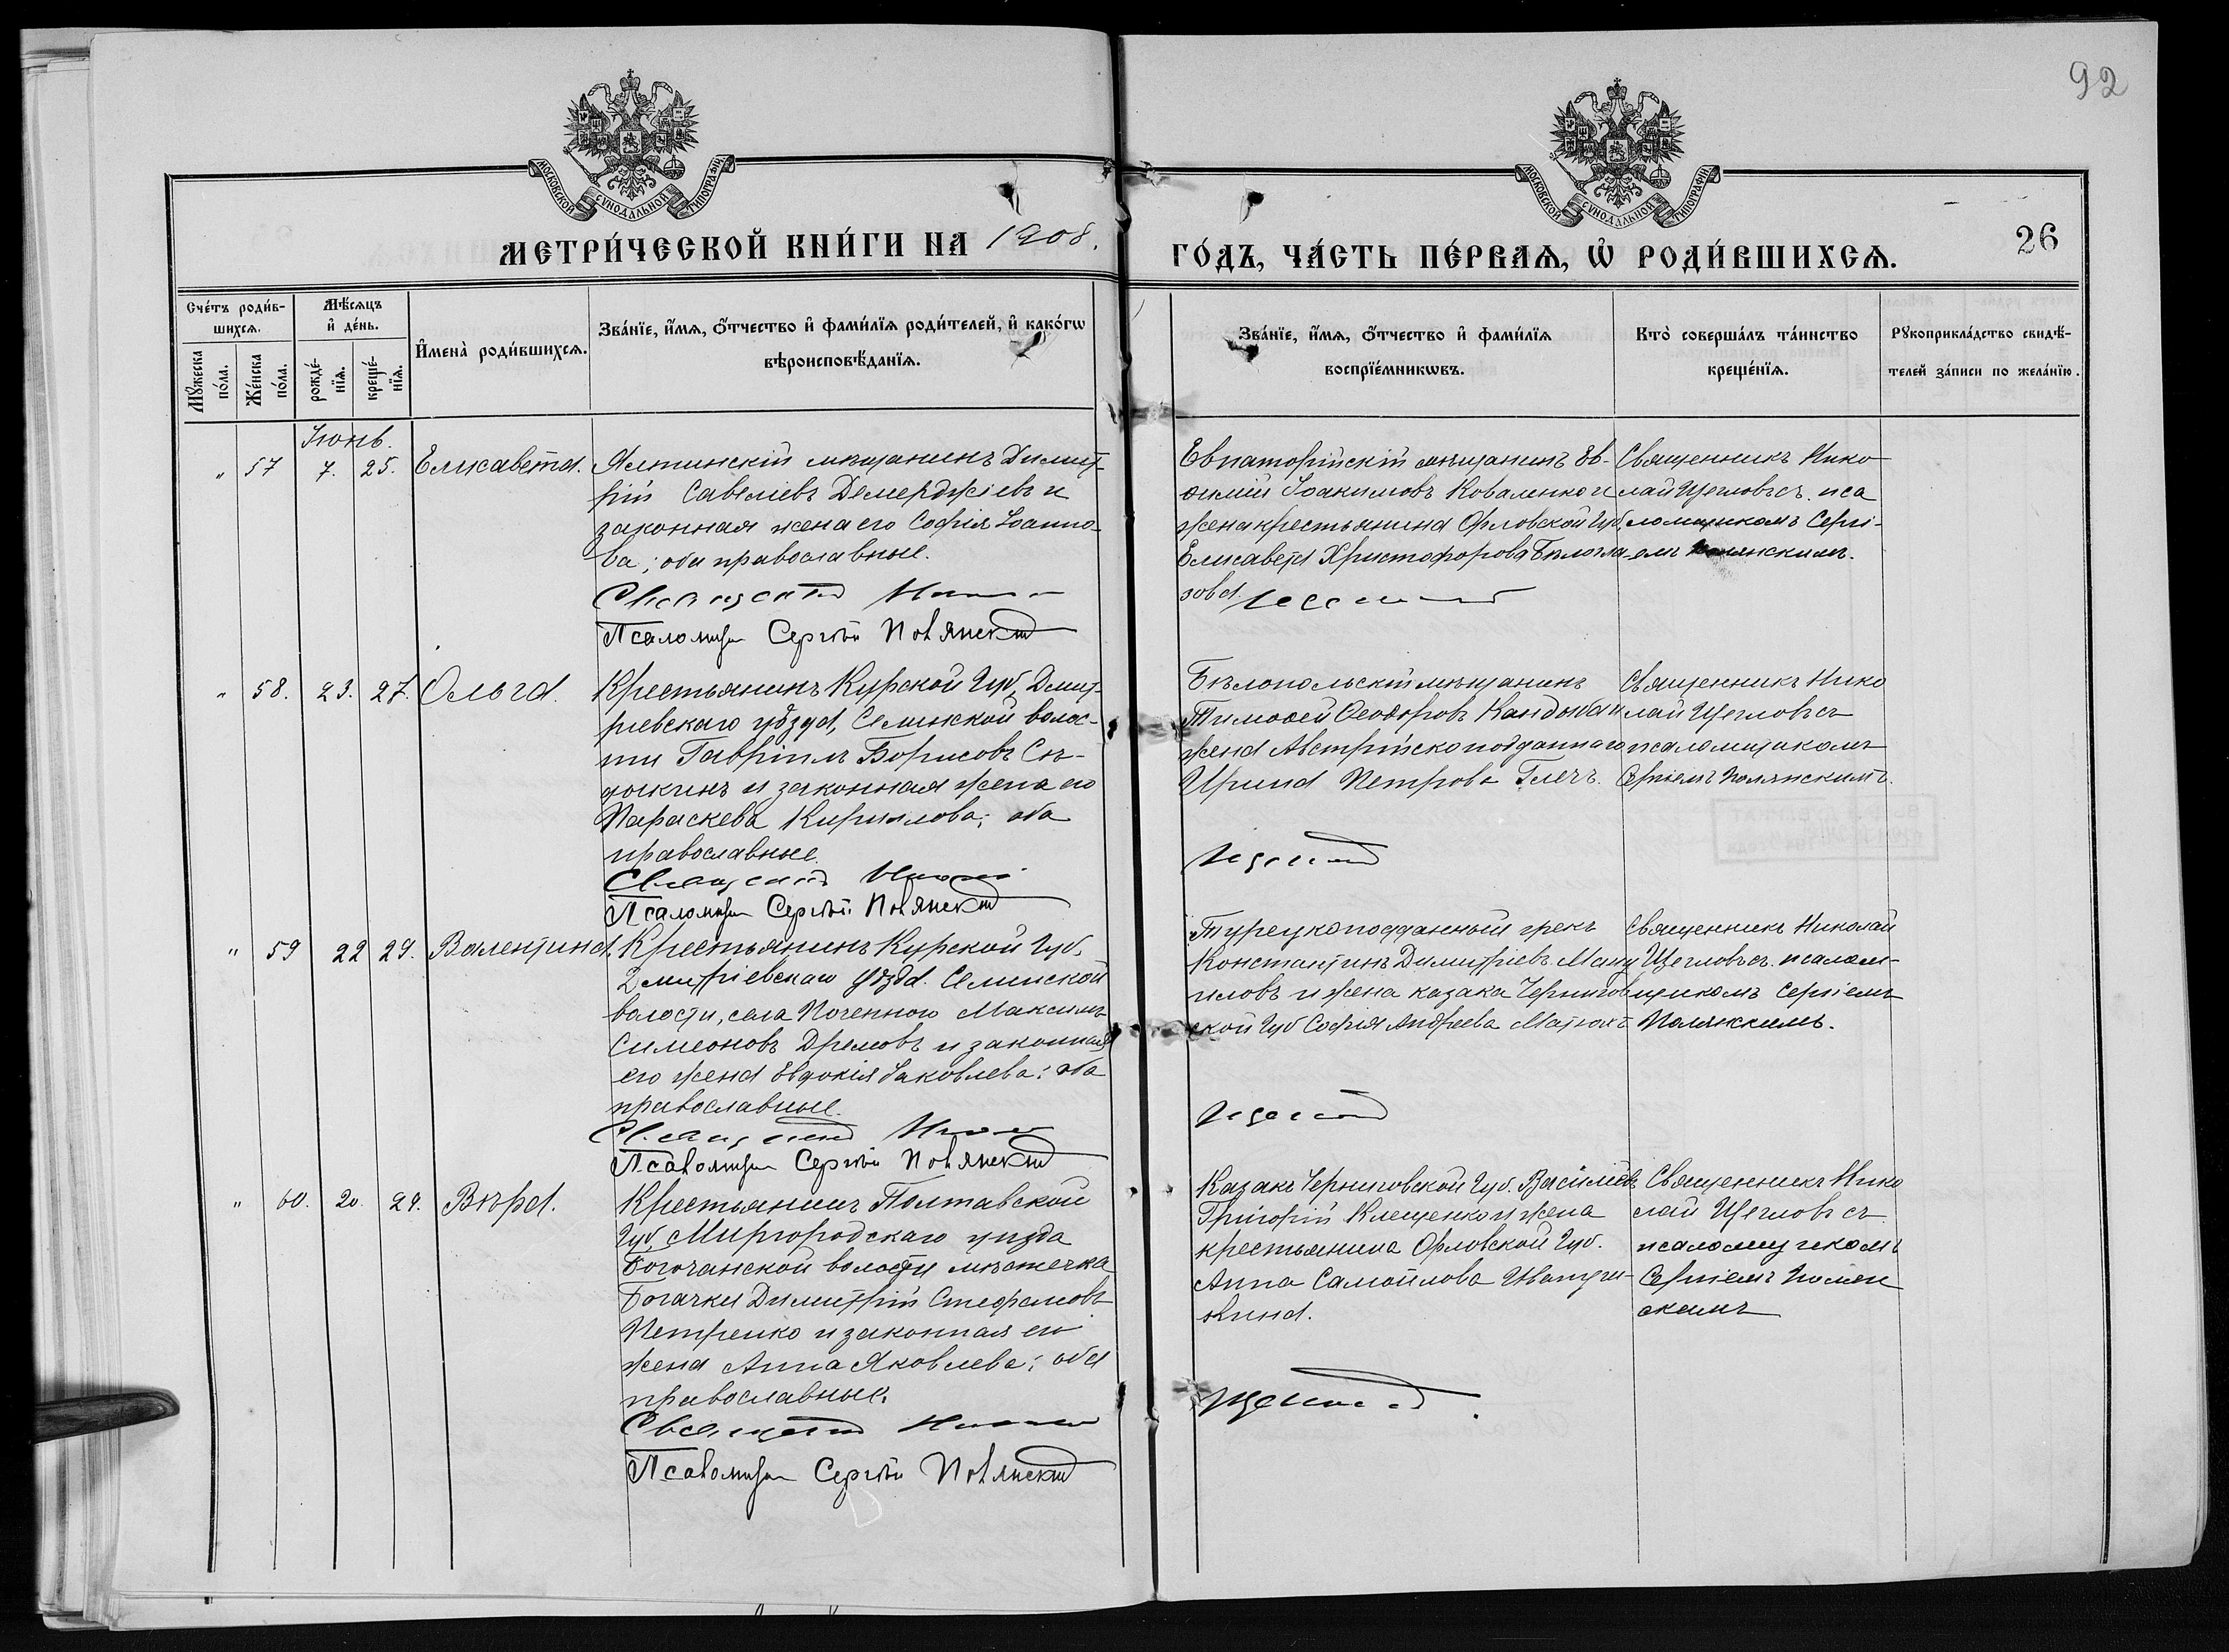 92
МОСКОВСКОЙ СѴНОДАЛЬНОЙ ТИПОГРАФІИ
МОСКОВСКОЙ СѴНОДАЛЬНОЙ ТИПОГРАФІИ
МЕТРИ́ЧЕСКОЙ КНИ́ГИ НА 1908.
ГО́ДЪ, ЧА́СТЬ ПЕ́РВАЯ, Ѽ РОДИ́ВШИХСЯ.
26
Сче́тъ роди́в-
шихся.
Мꙋжеска по́ла.
Же́нска по́ла.
Мѣ́сяцъ
и҆ де́нь.
рожде́-
нїя.
креще́-
нїя.
И҆мена̀ роди́вшихся.
Зва́нїе, и҆́мя, ѻ҆́тчество и҆ фами́лїя роди́телей, и҆ како́гѡ
вѣроисповѣ́данїя.
Зва́нїе, и҆́мя, ѻ҆́тчество и҆ фами́лїя
воспрїе́мникѡвъ.
Кто̀ соверша́лъ та́инство
креще́нїя.
Рꙋкоприкла́дство свидѣ́-
телей за́писи по жела́нїю.
Іюнь.
" 57 7. 25. Елисавета.
Ялтинскій мѣщанинъ Димит-
рій Савеліевъ Демерджіевъ и
законная жена его Софія Іоанно-
ва; оба православные.
Священникъ Николай
Псаломщ Сергѣй Полянскій
Евпаторійскій мѣщанинъ Ев-
фимій Іоакимовъ Коваленко и
жена крестьянина Орловской Губ.
Елисавета Христофорова Бѣлогла-
зова.
Щегловъ
Священникъ Нико
лай Щегловъ съ пса
ломщикомъ Сергі-
емъ Полянскимъ.
" 58. 23. 27. Ольга.
Крестьянинъ Курской Губ, Дмит-
ріевскаго уѣзда, Селинской волос-
ти Гавріилъ Борисовъ Съ-
дыкинъ и законная жена его
Параскева Кириллова; оба
православные.
Священникъ Николай
Псаломщ Сергѣй Полянскій
Бѣлопольскій мѣщанинъ
Тимофей Феодоровъ Кандыба и
жена Австрійскоподданнаго
Ирина Петрова Глечъ.
Щегловъ
Священникъ Нико
лай Щегловъ съ
псаломщикомъ
Сергіемъ Полянскимъ.
" 59 22 29. Валентина.
Крестьянинъ Курской Губ,
Дмитріевскаго Уѣзда. Селинской
волости, села Поченного Максимъ
Симеоновъ Дремовъ и законная
его жена Евдокія Іаковлева; оба
православные.
Священникъ Николай
Псаломщ Сергѣй Полянскій
Турецкоподданный грекъ
Константинъ Димитріевъ Ману
иловъ и жена казака Чернигов
ской Губ София Андреева Матюхъ
Щегловъ
Священникъ Николай
Щегловъ съ псалом-
щикомъ Сергіемъ
Полянскимъ.
" 60. 20. 29. Вѣра.
Крестьянинъ Полтавской
Губ, Миргородскаго уѣзда
Богочанской волости мѣстечка
Богачки Димитрій Стефановъ
Петренко и законная его
жена Анна Яковлева; оба
православные.
Священникъ Николай
Псаломщ Сергѣй Полянскій
Казакъ Черниговской Губ. Василіевъ
Григорій Клещенко и жена
крестьянина Орловской Губ.
Анна Самойлова
Щегловъ
Священникъ Нико
лай Щегловъ съ
псаломщикомъ
Сергіемъ Полян
скимъ